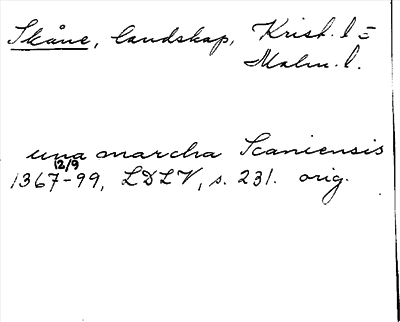 Skåne, landskap, Krist. l =
Malm. l.
una marcha Scaniensis
12/9
1367-99, LDLV, s. 231. orig.